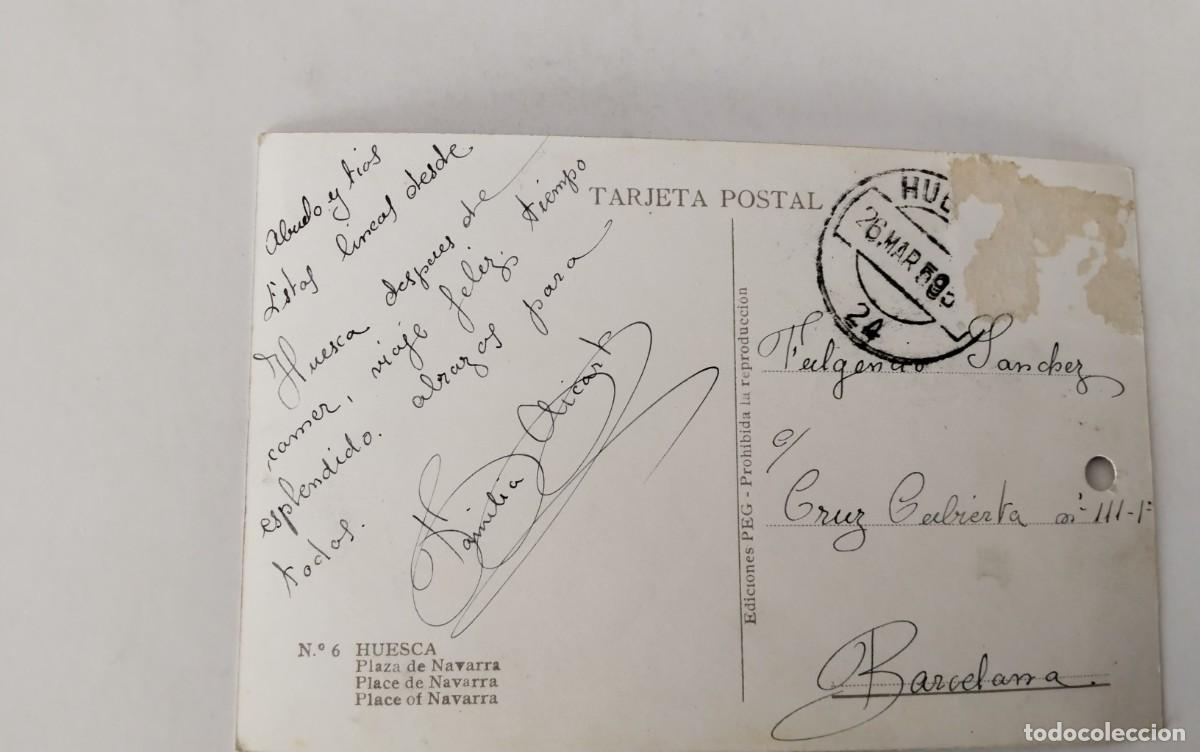 Abuelo y tios
Estas lineas desde
Huesca despues de
comer, viaje feliz, tiempo
esplendido. abrazos para
todos.
Familia Aicart
N.º 6 HUESCA
Plaza de Navarra
Place de Navarra
Place of Navarra
TARJETA POSTAL
Ediciones PEG - Prohibida la reproduccion
26.MAR 59
24
Fulgencio Sanchez
c/
Cruz Cubierta nº 111-1º
Barcelona.
todocoleccion